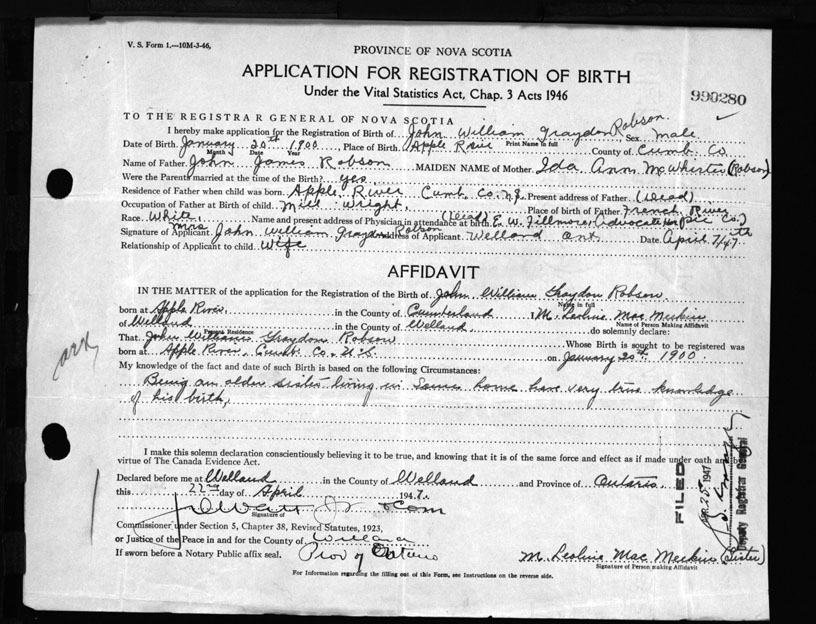 V. S. Form 1.—10M-3-46,
PROVINCE OF NOVA SCOTIA
APPLICATION FOR REGISTRATION OF BIRTH
Under the Vital Statistics Act, Chap. 3 Acts 1946
990280
TO THE REGISTRAR GENERAL OF NOVA SCOTIA
I hereby make application for the Registration of Birth of John William Graydon Robson. Sex Male
Print Name in full
Date of Birth. January 20th 1900 Place of Birth. Apple River County of Cumb. Co
Month Date Year
Name of Father John James Robson MAIDEN NAME of Mother Ida Ann McWhirter (Robson)
Were the Parents married at the time of Birth? yes
Residence of Father when child was born. Apple River Cumb. Co. N.S. Present address of Father (Dead)
Occupation of Father at Birth of child Mill Wright, Place of birth of Father French River
Race. White, Name and present address of Physician in attendance at birth (Dead) E. W. Fillmore, Advocate
Signature of Applicant Mrs John William Graydon Robson Address of Applicant Welland Ont Date April 7/47
Relationship of Applicant to child Wife
AFFIDAVIT
IN THE MATTER of the application for the Registration of the Birth of John William Graydon Robson
Name in full
born at Apple River, in the County of Cumberland I, M.
Name of Person Making Affidavit
of Welland in the County of Welland do solemnly declare:
Present Residence
That John William Graydon Robson Whose Birth is sought to be registered was
born at Apple River, Cumb. Co. N.S. on January 20th 1900.
My knowledge of the fact and date of such Birth is based on the following Circumstances:
Being an older sister living in same home have very true knowledge
of his birth,
I make this solemn declaration conscientiously believing it to be true, and knowing that it is of the same force and effect as if made under oath and by
virtue of The Canada Evidence Act.
Declared before me at Welland in the County of Welland and Province of Ontario
this 22nd day of April 1947.
Signature of
Commissioner under Section 5, Chapter 38, Revised Statutes, 1923,
or Justice of the Peace in and for the County of Welland
If sworn before a Notary Public affix seal. Prov of Ontario
M. (Sister)
Signature of Person making Affidavit
For Information regarding the filling out of this Form, see Instructions on the reverse side.
FILED
1947
Deputy Registrar General